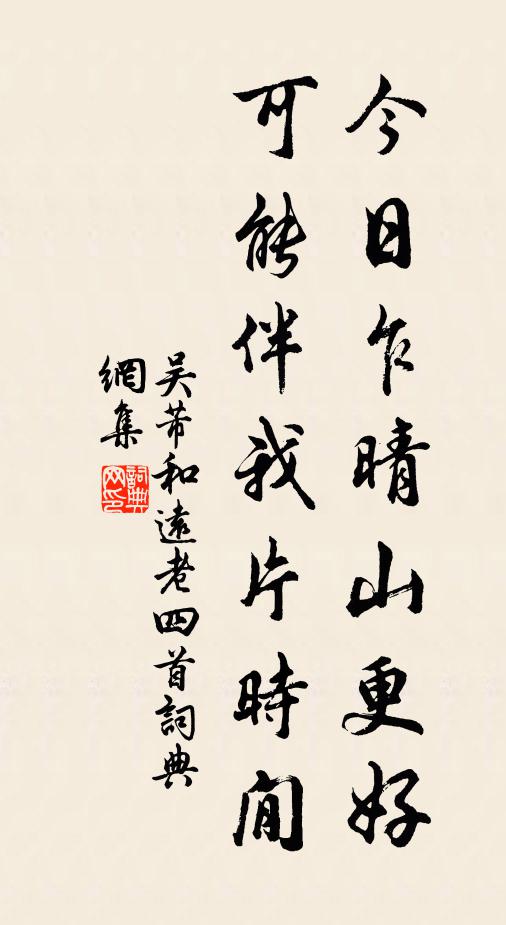 今日乍晴山更好
可能伴我片時閒
吳芾和遠老四首詞典
網集
詞典網印